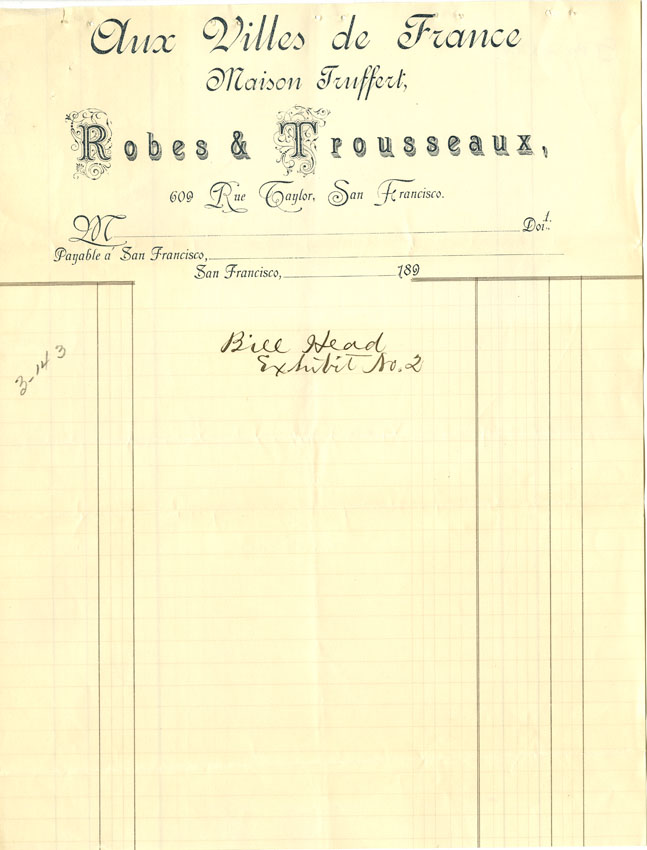 Aux Villes de France
Maison Truffert,
Robes & Trousseaux,
609 Rue Taylor, San Francisco.
M Doit.
Payable à San Francisco,
San Francisco, 189
Bill Head
Exhibit No. 2
3-143